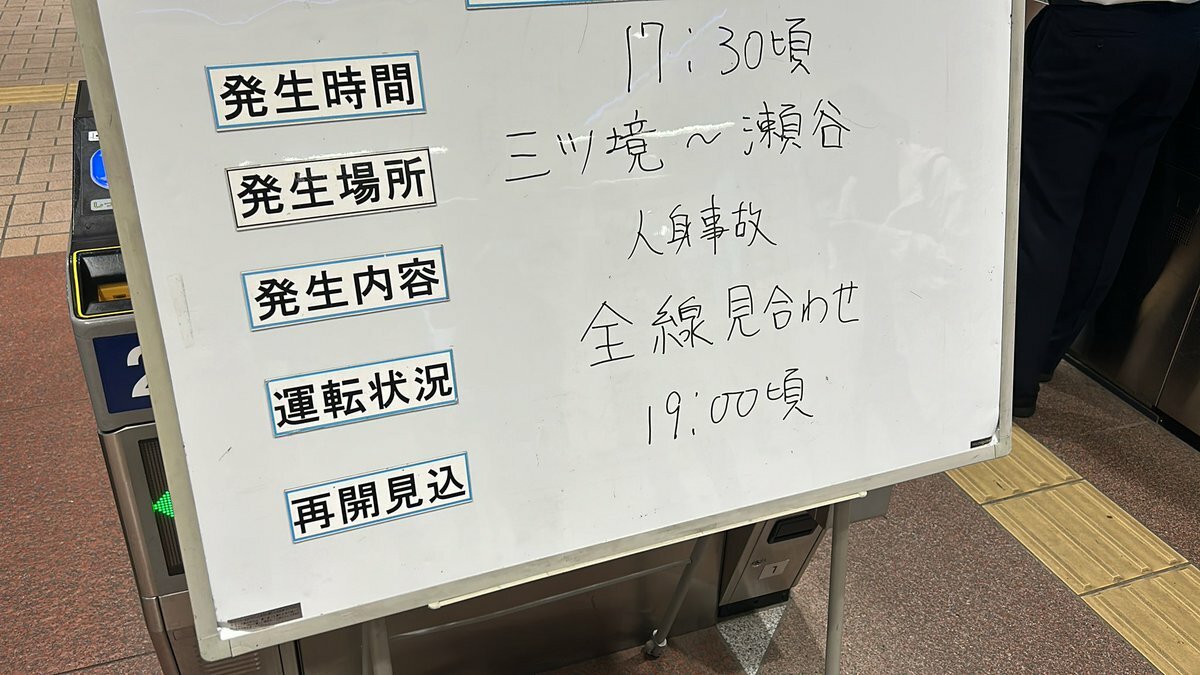 発生時間 17:30頃
発生場所 三ツ境~瀬谷
発生内容 人身事故
運転状況 全線見合わせ
再開見込 19:00頃
2
1